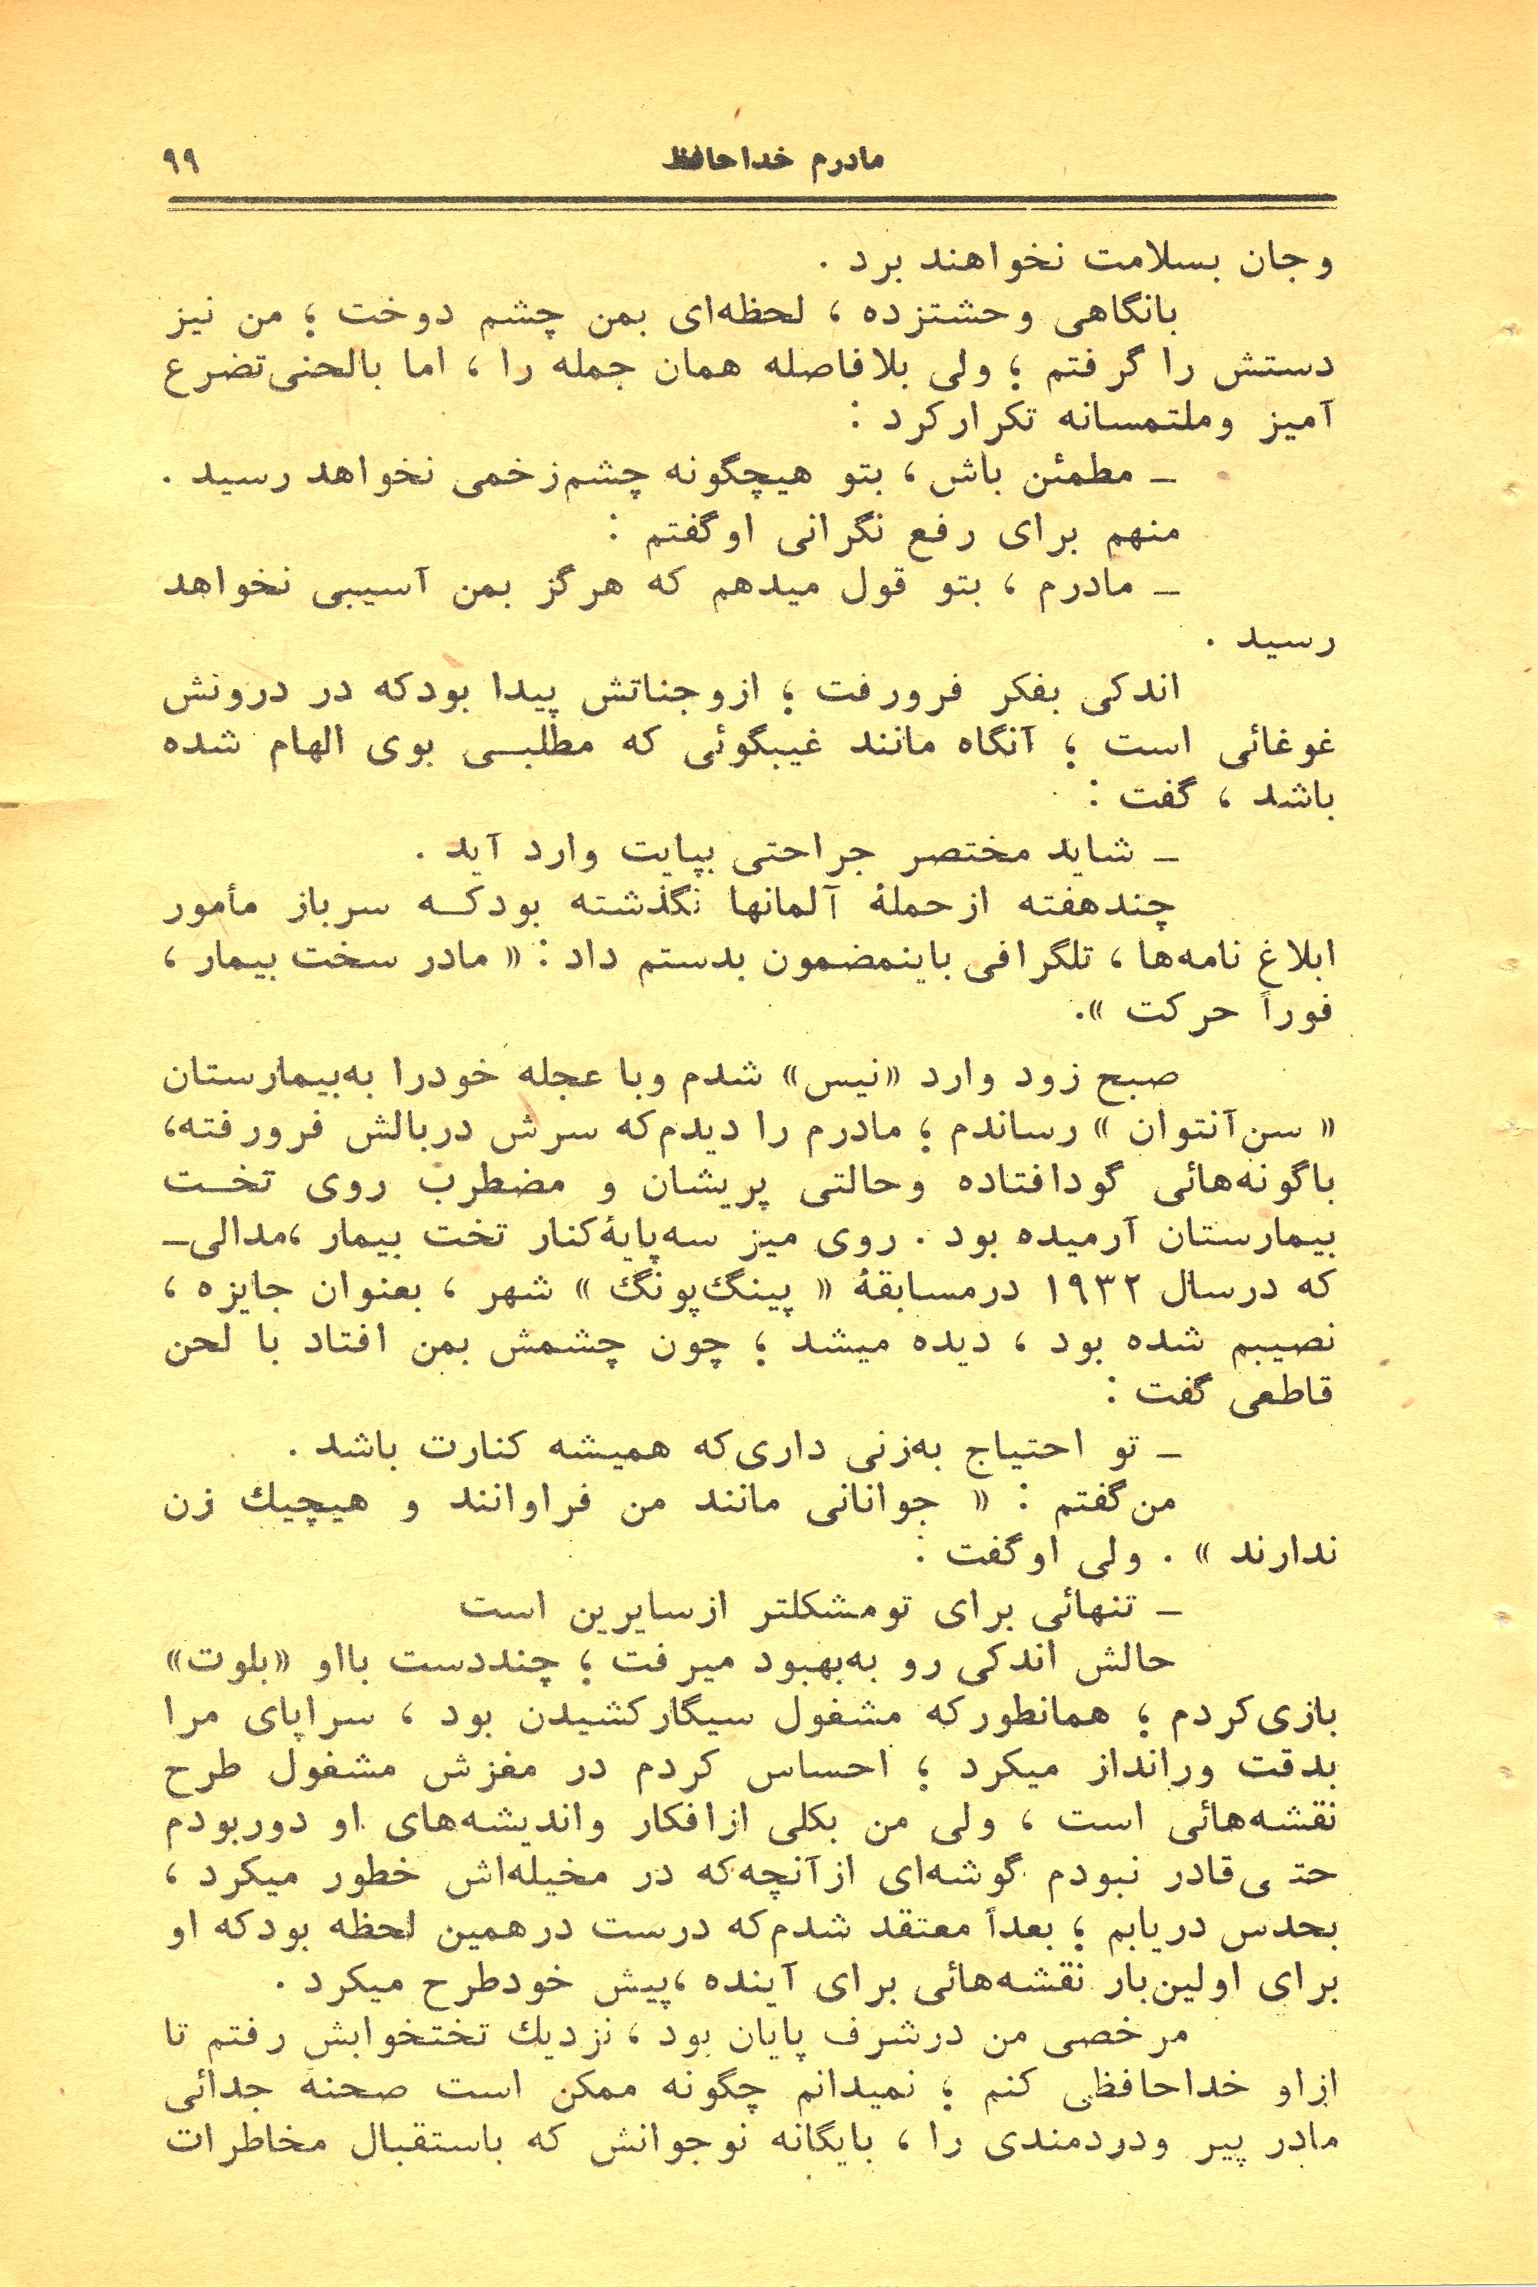 مادرم خداحافظ
۹۹
وجان بسلامت نخواهند برد .
بانگاهی وحشتزده ، لحظه‌ای بمن چشم دوخت ؛ من نیز
دستش را گرفتم ؛ ولی بلافاصله همان جمله را ، اما بالحنی تضرع
آمیز وملتمسانه تکرارکرد :
ـ مطمئن باش ، بتو هیچگونه چشم‌زخمی نخواهد رسید .
منهم برای رفع نگرانی اوگفتم :
ـ مادرم ، بتو قول میدهم که هرگز بمن آسیبی نخواهد
رسید .
اندکی بفکر فرورفت ؛ ازوجناتش پیدا بودکه در درونش
غوغائی است ؛ آنگاه مانند غیبگوئی که مطلبـی بوی الهام شده
باشد ، گفت :
ـ شاید مختصر جراحتی بپایت وارد آید .
چندهفته ازحملهٔ آلمانها نگذشته بودکـه سرباز مأمور
ابلاغ نامه‌ها ، تلگرافی باینمضمون بدستم داد : « مادر سخت بیمار ،
فوراً حرکت ».
صبح زود وارد «نیس» شدم وبا عجله خودرا به‌بیمارستان
« سن‌آنتوان » رساندم ؛ مادرم را دیدم‌که سرش دربالش فرورفته،
باگونه‌هائی گودافتاده وحالتی پریشان و مضطرب روی تخـت
بیمارستان آرمیده بود . روی میز سه‌پایهٔ‌کنار تخت بیمار ،مدالی‌ـ
که درسال ۱۹۳۲ درمسابقهٔ « پینگ‌پونگ » شهر ، بعنوان جایزه ،
نصیبم شده بود ، دیده میشد ؛ چون چشمش بمن افتاد با لحن
قاطعی گفت :
ـ تو احتیاج به‌زنی داری‌که همیشه کنارت باشد .
من‌گفتم : « جوانانی مانند من فراوانند و هیچیك زن
ندارند » . ولی اوگفت :
ـ تنهائی برای تومشکلتر ازسایرین است
حالش اندکی رو به‌بهبود میرفت ؛ چنددست بااو «بلوت»
بازی‌کردم ؛ همانطورکه مشغول سیگارکشیدن بود ، سراپای مرا
بدقت ورانداز میکرد ؛ احساس کردم در مغزش مشغول طرح
نقشه‌هائی است ، ولی من بکلی ازافکار واندیشه‌های او دوربودم
حتی‌قادر نبودم گوشه‌ای ازآنچه‌که در مخیله‌اش خطور میکرد ،
بحدس دریابم ؛ بعداً معتقد شدم‌که درست درهمین لحظه بودکه او
برای اولین‌بار نقشه‌هائی برای آینده ،پیش خودطرح میکرد .
مرخصی من درشرف پایان بود ، نزدیك تختخوابش رفتم تا
ازاو خداحافظی کنم ؛ نمیدانم چگونه ممکن است صحنهٔ جدائی
مادر پیر ودردمندی را ، بایگانه نوجوانش که باستقبال مخاطرات